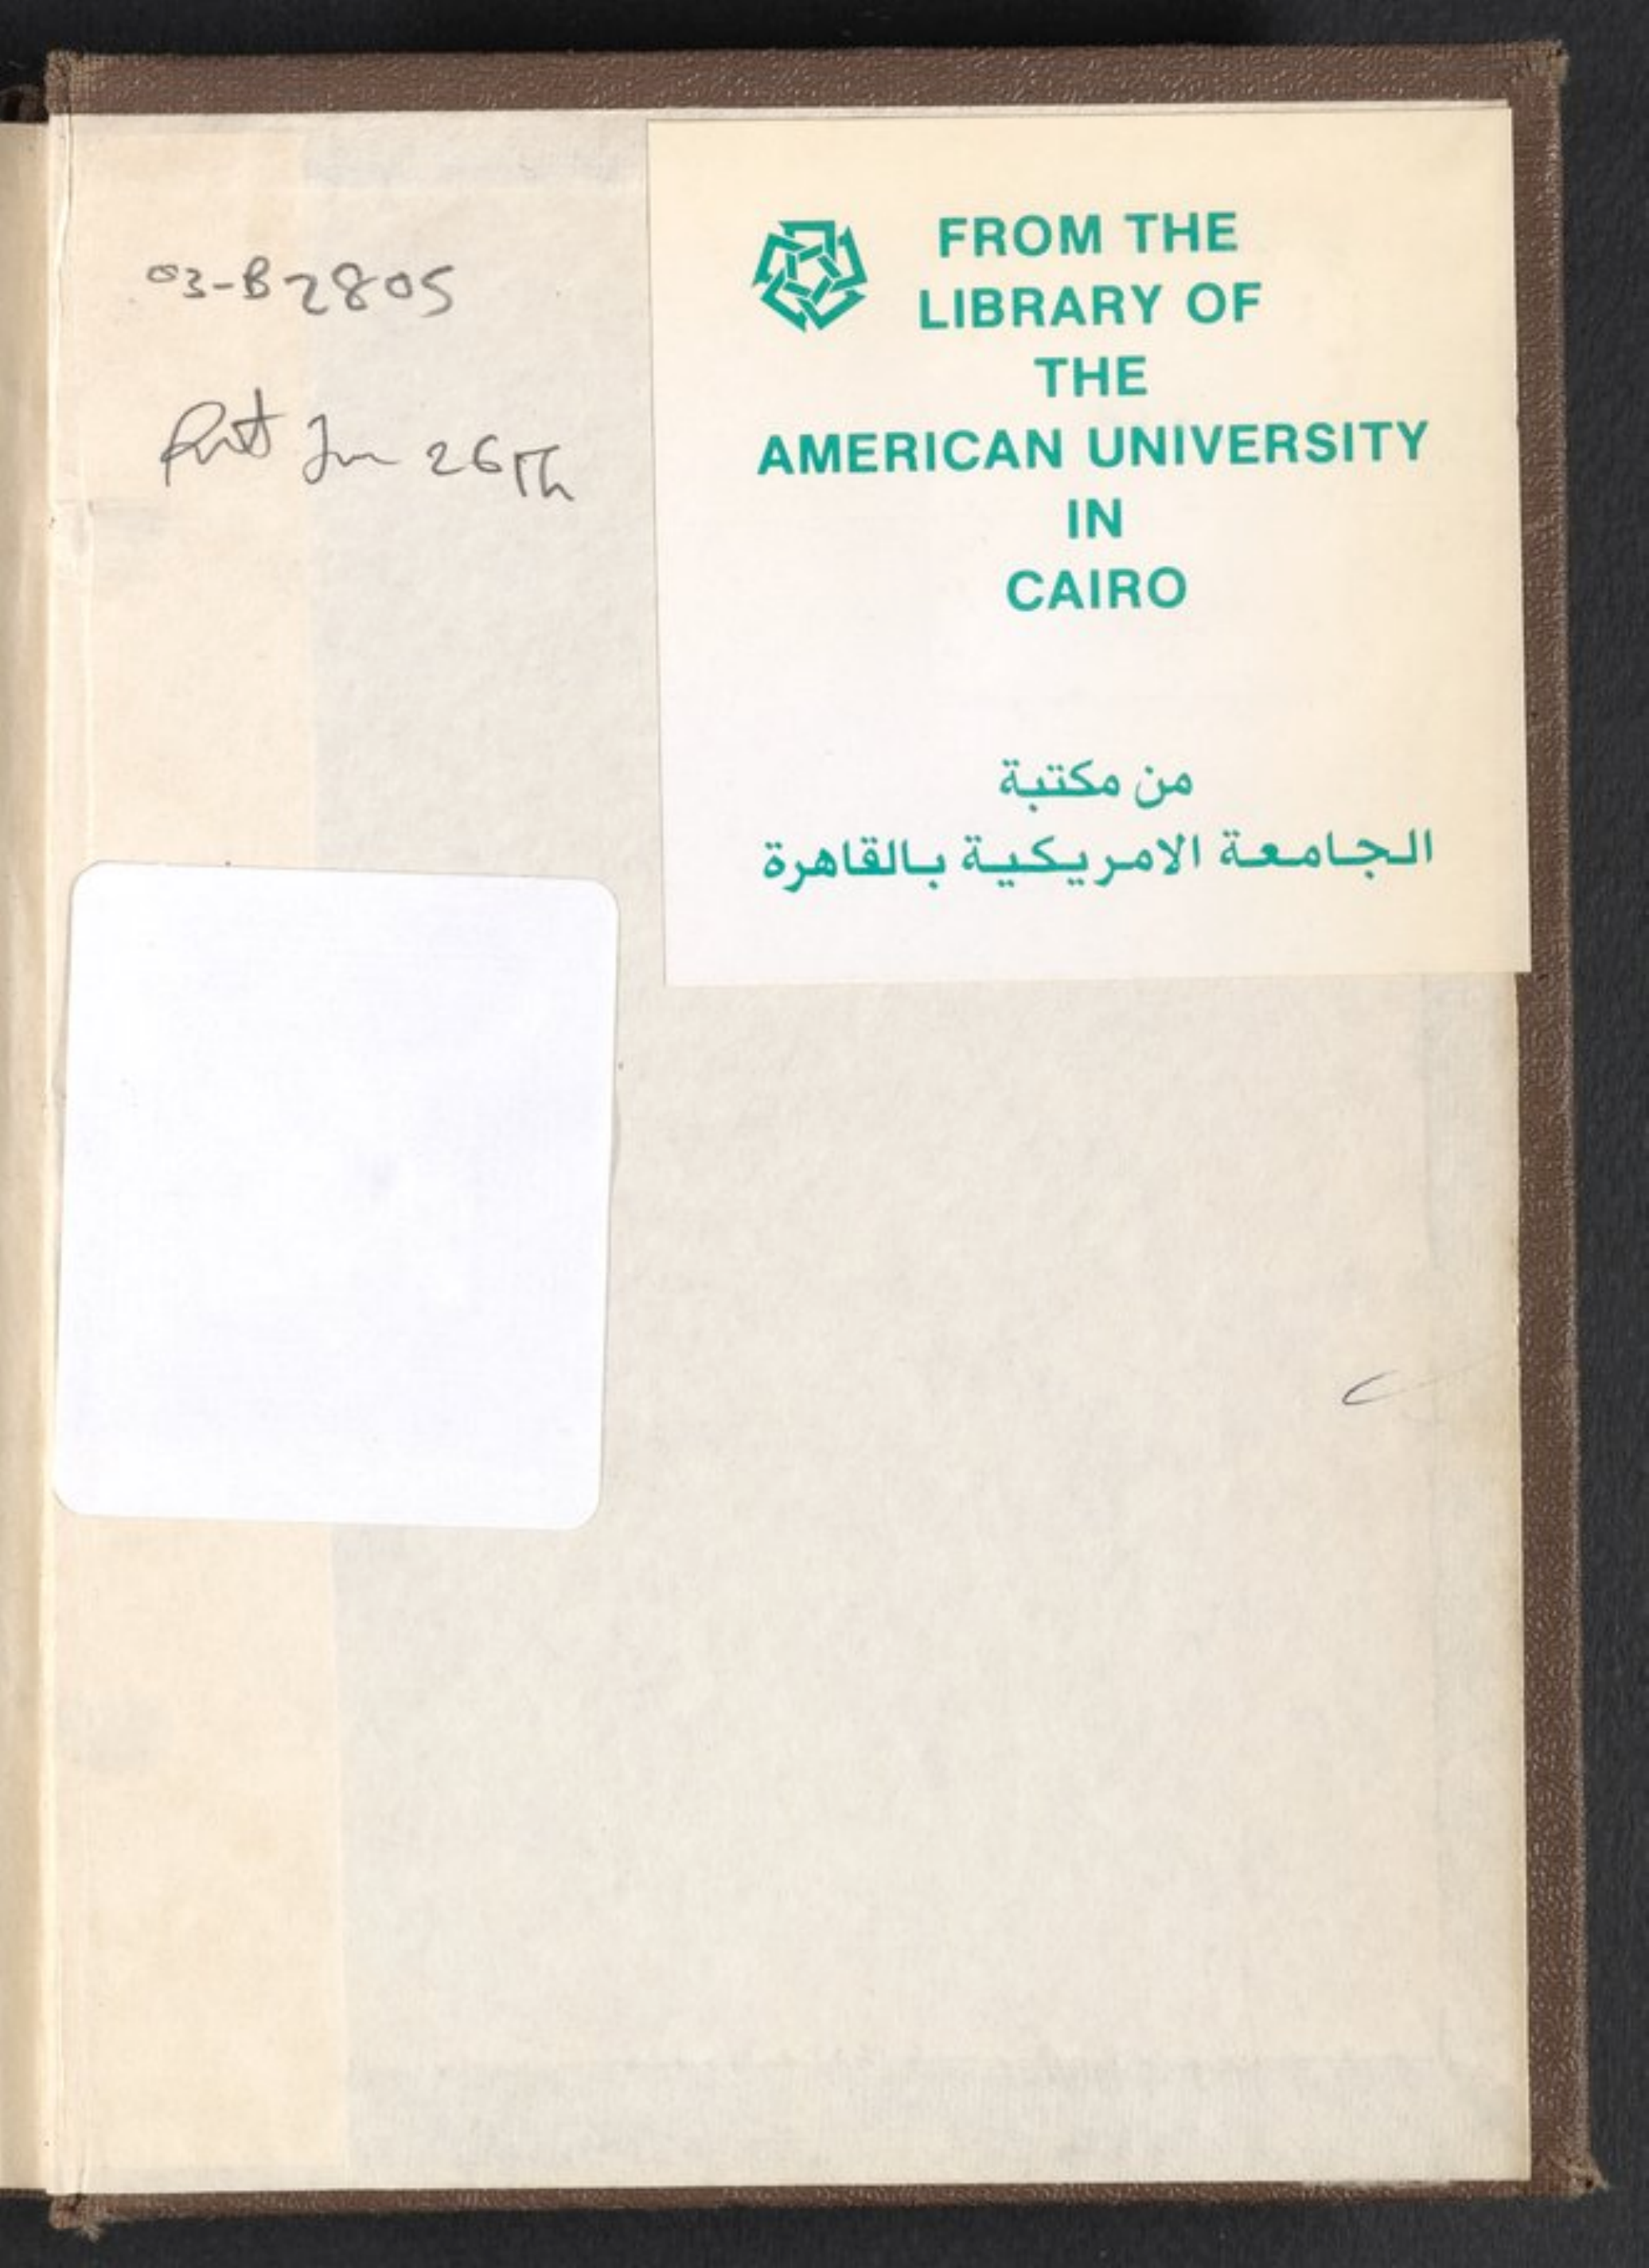 03-B2805
26th
FROM THE
LIBRARY OF
THE
AMERICAN UNIVERSITY
IN
CAIRO
من مكتبة
الجامعة الامريكية بالقاهرة